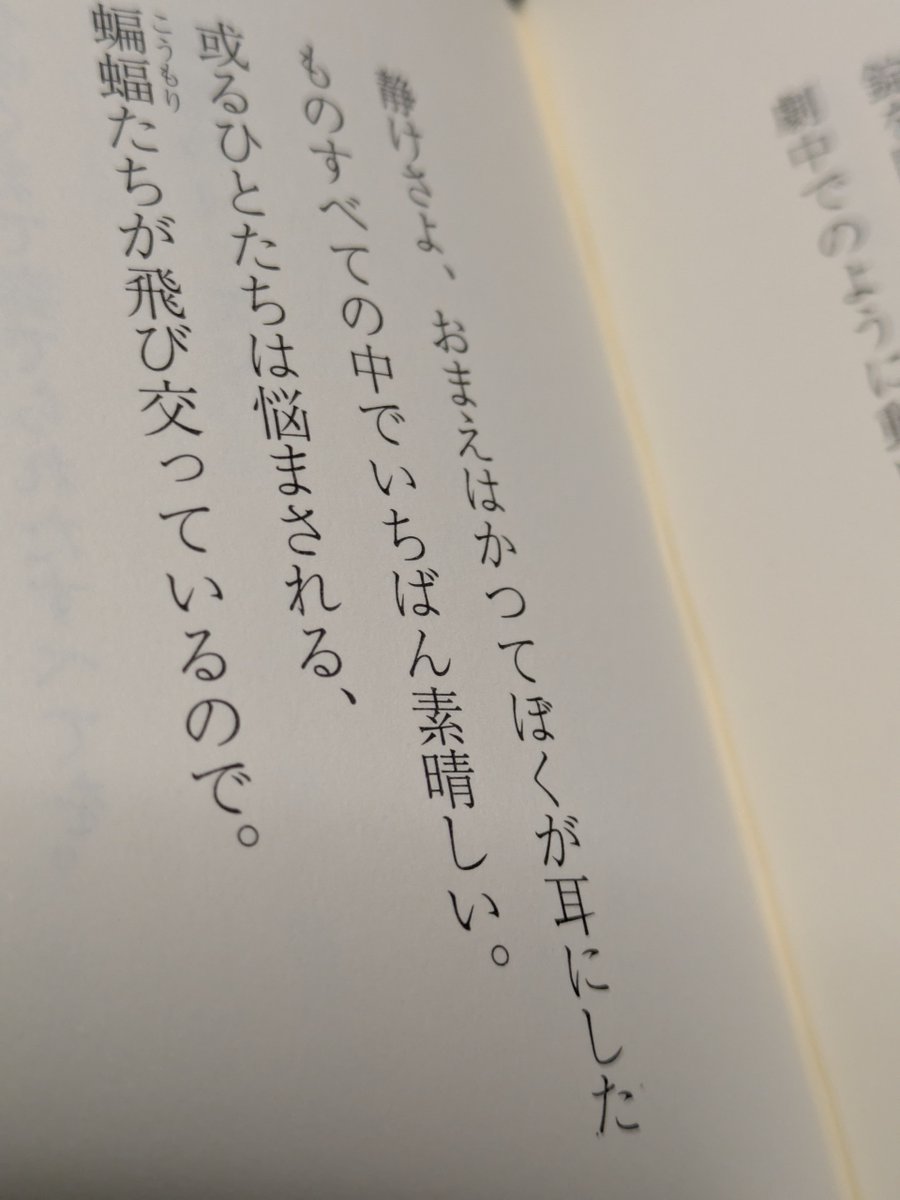 劇中でのように
静けさよ、おまえはかつてぼくが耳にした
ものすべての中でいちばん素晴しい。
或るひとたちは悩まされる、
蝙蝠たちが飛び交っているので。
こうもり